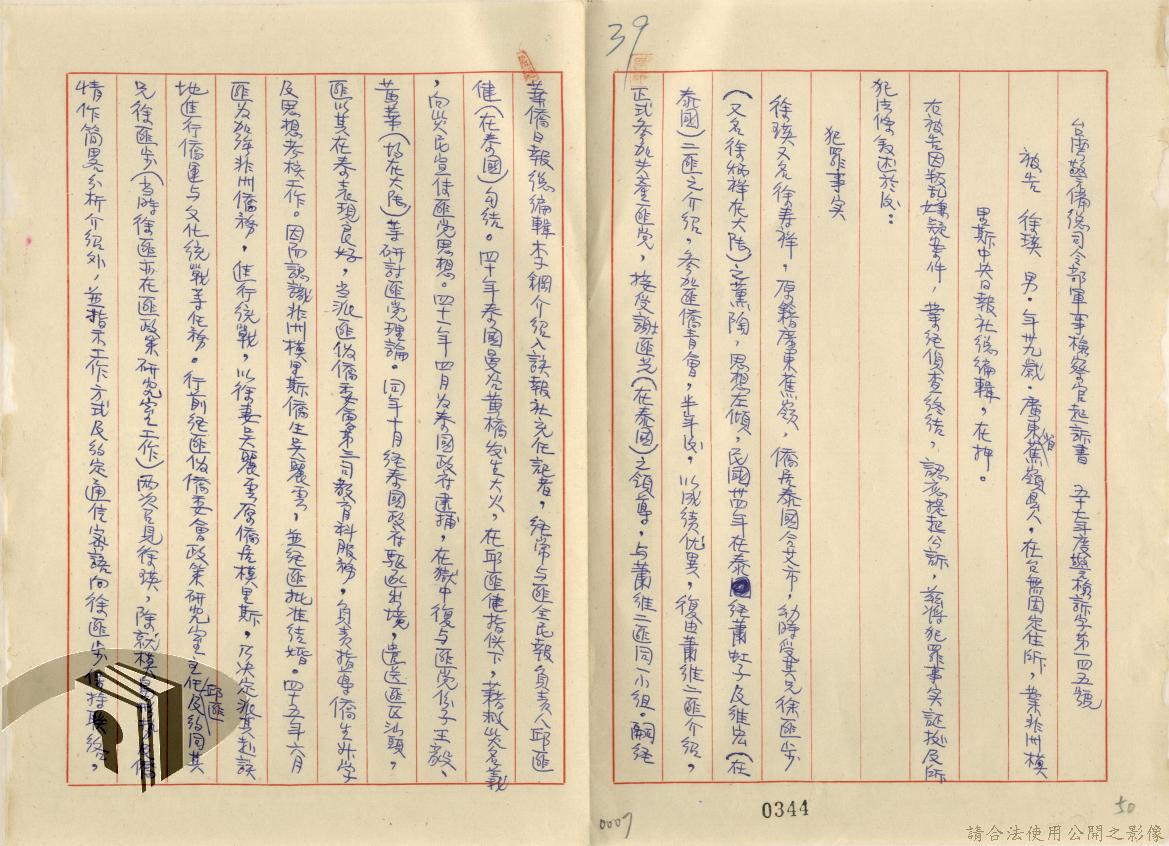 39
台灣警備總司令部軍事檢察官起訴書 五十七年度警檢訴字第一四五號
被告 徐瑛 男·年廿九歲·廣東省蕉嶺縣人·在台無固定住所，業非洲模
里斯中央日報社總編輯，在押。
右被告因叛乱嫌疑案件，業經偵查終結，認應提起公訴，茲將犯罪事实証據及所
犯法條敘述於后：
犯罪事实
徐瑛又名徐寿祥，原籍廣東蕉嶺，僑居泰國合艾市，幼時受其兄徐匪步
（又名徐炳祥在大陆）之薰陶，思想左傾，民國卅四年在泰經蕭虹子及維宏（在
泰國）二匪之介紹，參加匪僑青會，半年后，以成績优異，復由蕭維二匪介紹，
正式參加共產匪党，接受謝匪光（在泰國）之領導，与蕭維二匪同一小組。嗣經
華僑日報總編輯李鋼介紹入該報社充任記者，經常与匪全民報負責人邱匪
健（在泰國）勾結。四十年泰國曼谷黃橋发生大火，在邱匪健指使下，藉救災名義
，向災民宣传匪党思想。四十一年四月为泰國政府逮捕，在獄中復与匪党份子王毅、
黃華（均在大陆）等研討匪党理論。同年十月經泰國政府驅逐出境，遣送匪區汕頭，
匪以其在泰表現良好，当派匪伪僑委會第三司教育科服務，負責指導僑生升学
及思想考核工作。因而認識非洲模里斯僑生吳麗雲，並經匪批准结婚。四十五年六月
匪为加強非洲僑務，進行統戰，以徐妻吳麗雲原僑居模里斯，乃決定派其赴該
地進行僑運与文化統戰等任務。行前經匪伪僑委會政策研究室主任邱匪及約同其
兄徐匪步（当時徐匪亦在匪政策研究室工作）兩次召見徐瑛，除就模里斯
情作簡畧分析介紹外，並指示工作方式及約定通信家語向徐匪步保持联絡，
0344
0007
50
請合法使用公開之影像